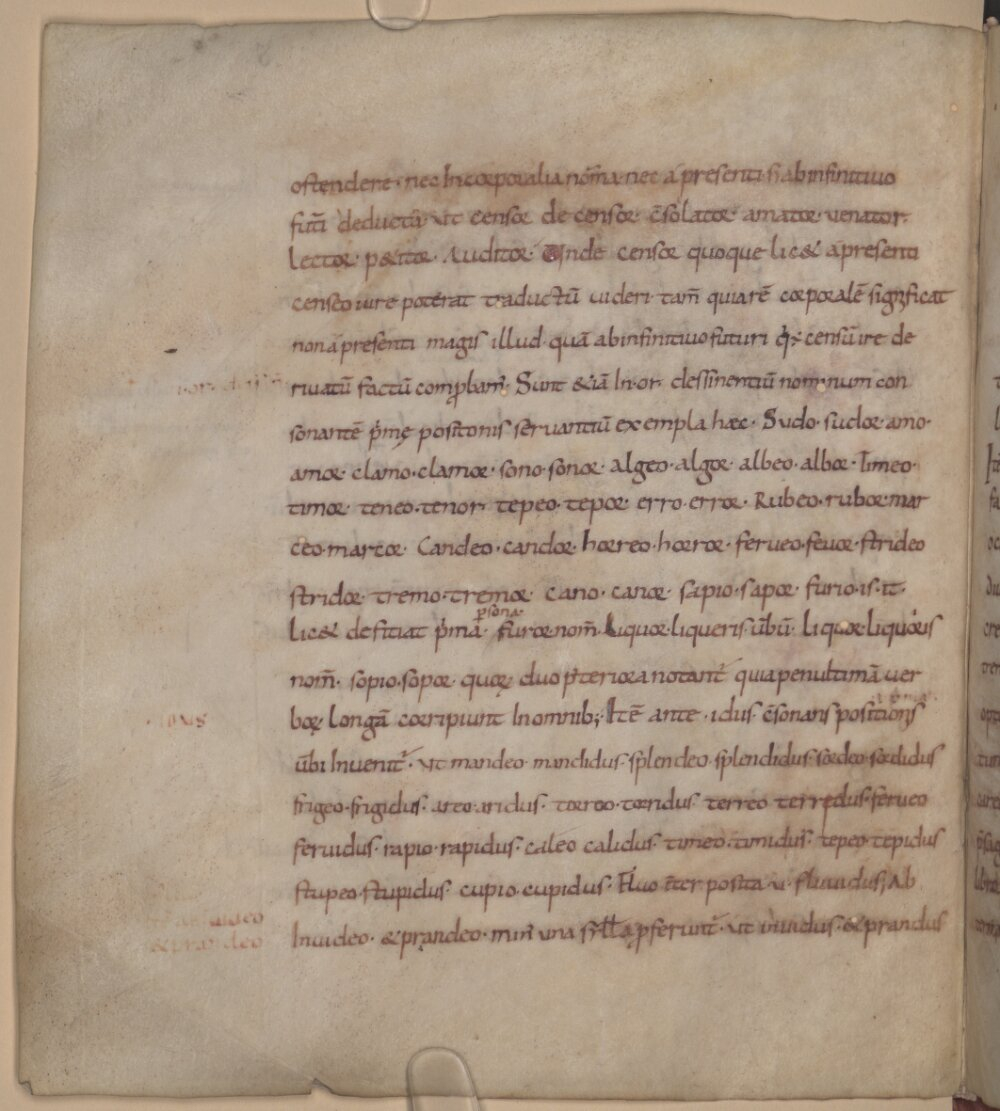 ostendere · nec Incorporalia nom̄a · nec á presenti · s; ab infinitiuo
futr̄i deductū · Vt censor de censor c̄solator amator venator·
Lector· p&itor· Auditor· Vnde censor quoque lic& a presenti
censeo iure poterat traductū uideri· tam̄ quia rē corporalē significat
non a presenti magis illud· quā ab infinitiuo futuri qḋ ÷ censū ire de
riuatū factū comprobam̄· Sunt &iā In· or· dessinentiū nominum con
sonantē pͥmę positonis seruantiū exempla hæc· Sudo· sudor· amo·
amor· clamo· clamor· sono· sonor· algeo· algor· albeo· albor· timeo·
timor· teneo· tenor· tepeo· tepor· erro· error· Rubeo· rubor· mar
ceo· marcor· Candeo· candor· horreo· horror· ferueo· feuor· strideo
stridor· tremo· tremor· cano· canor· sapio· sapor· furio· is· it·
p̄sona·
lic& defitiat pͥmā· furor nom̄· Liquor· liqueris ūbū· liquor· liquoris
nom̄· sopio· sopor· quorę duo p̄teriora notant̄ quia penultimā uer
borę Longā corripiunt In omnib; Itē ante· idus· c̄sonans positionis
ūbi Inuenit̄· Vt mandeo· mandidus· splendeo· splendidus· sordeo· sordidus
frigeo· frigidus· areo· aridus· torreo· torridus· terreo terredus· ferueo
feruidus· rapio· rapidus· caleo calidus· timeo· timidus· tepeo· tepidus
stupeo· stupidus· cupio· cupidus· Fluo īter posita u· fluuidus; Ab
Inuideo· & prandeo· min̄ una syll̄a p̄ferunt̄· Vt inuidus· & prandus
uideo
& prandeo